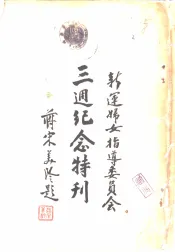 新運婦女指導委員會
三週紀念特刊
蔣宋美齡題